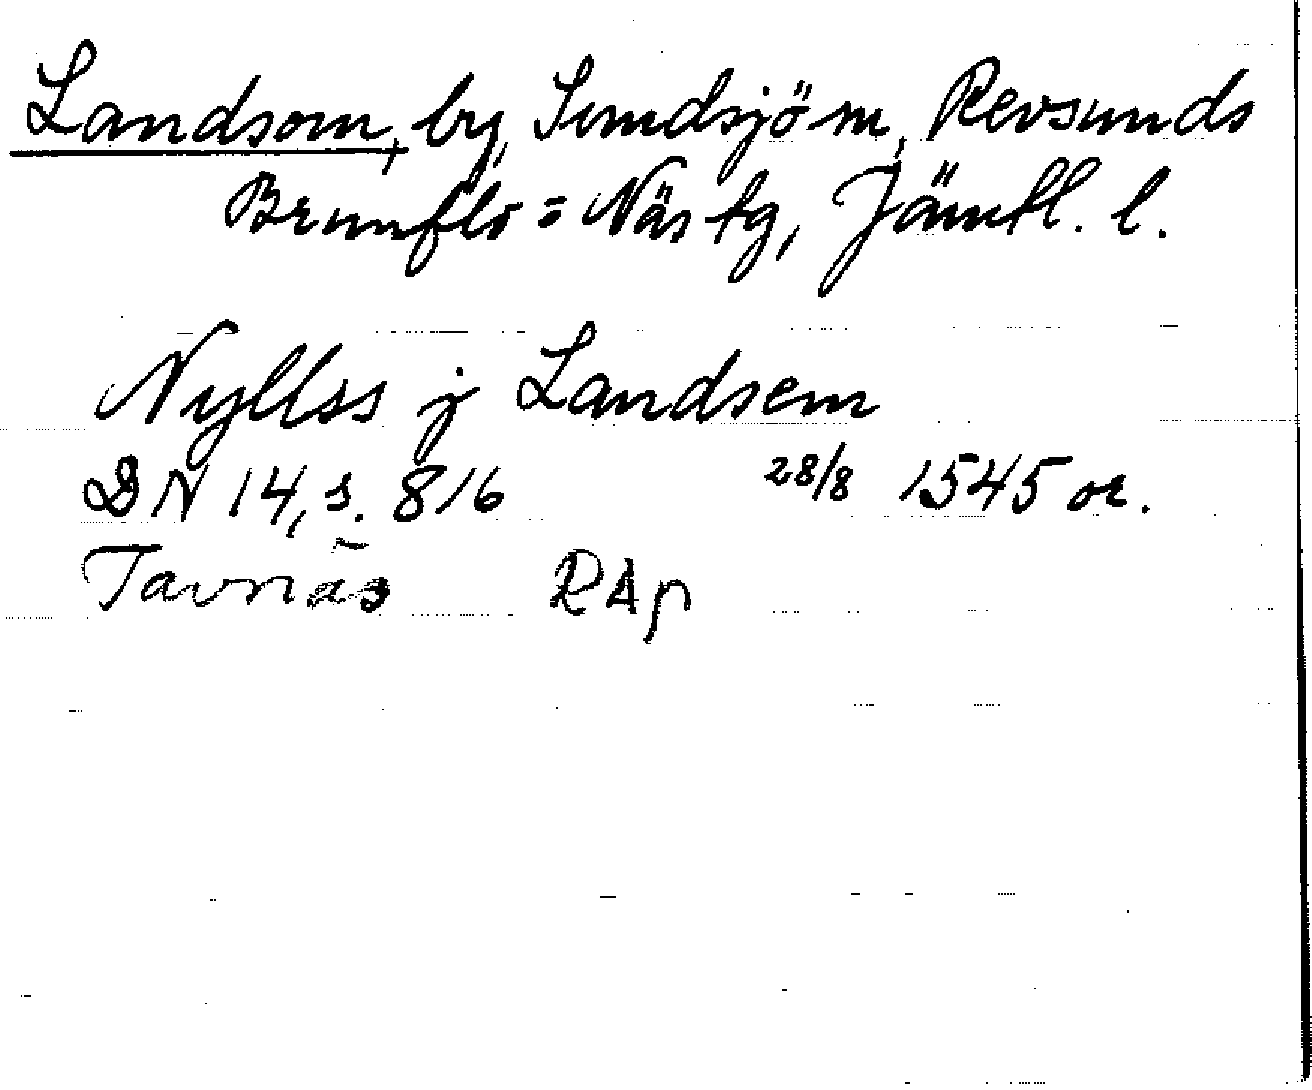 Landsom, by, Sundsjö sn, Revsunds
Brunflo = Näs tg, Jämtl. l.
Nyllss j Landsem
DN 14, s. 816 28/8 1545 or.
Tavnäs RAp